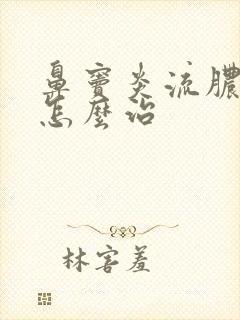 鼻窦炎流膿
怎麼治
林害羞